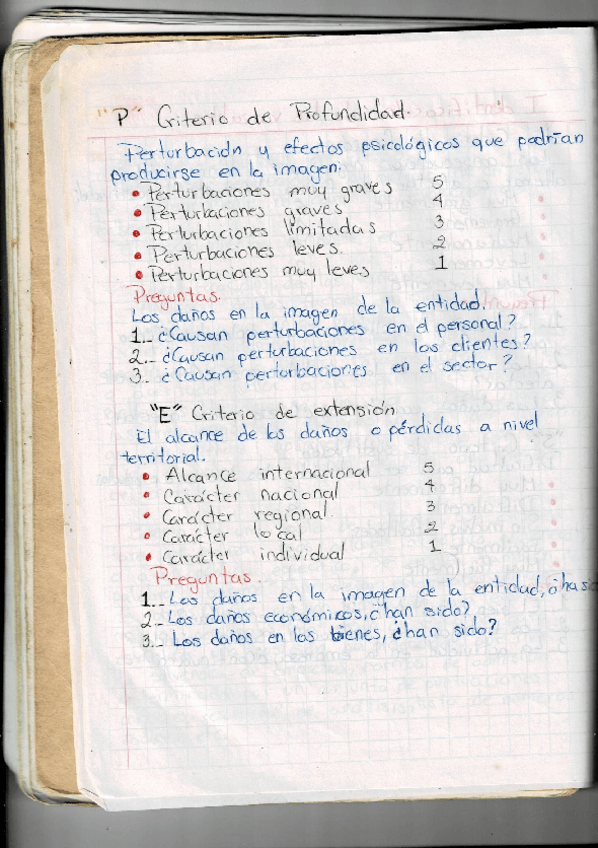 "P" Criterio de Profundidad.
Perturbación y efectos psicológicos que podrían
producirse en la imagen:
• Perturbaciones muy graves 5
• Perturbaciones graves 4
• Perturbaciones limitadas 3
• Perturbaciones leves. 2
• Perturbaciones muy leves 1
Preguntas.
Los daños en la imagen de la entidad.
1.- ¿Causan perturbaciones en el personal?
2.- ¿Causan perturbaciones en los clientes?
3.- ¿Causan perturbaciones en el sector?
"E" Criterio de extensión
El alcance de los daños o pérdidas a nivel
territorial.
• Alcance internacional 5
• Carácter nacional 4
• Carácter regional. 3
• Carácter local 2
• Carácter individual 1
Preguntas.
1.- Los daños en la imagen de la entidad, ¿ha sid
2.- Los daños económicos, ¿han sido?
3.- Los daños en los bienes, ¿han sido?